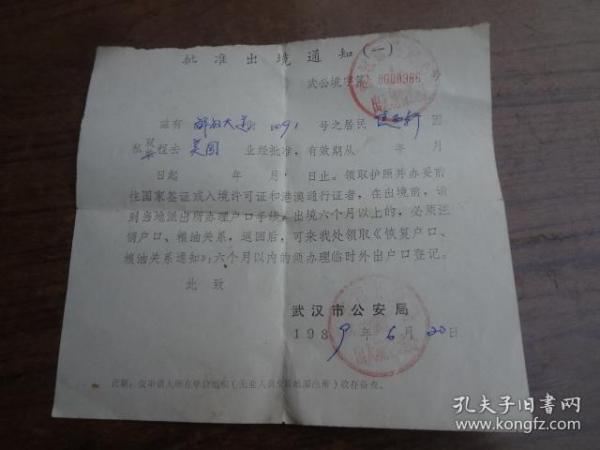 批准出境通知(一)
武公境字第 0000986 号
兹有 解放大道 1091 号之居民 因
私 程去 美国 业经批准，有效期从 年 月
日起 年 月 日止。领取护照并办妥前
往国家签证或入境许可证和港澳通行证者，在出境前，请
到当地派出所办理户口手续。出境六个月以上的，必须注
销户口、粮油关系，返回后，可来我处领取《恢复户口、
粮油关系通知》；六个月以内的须办理临时外出户口登记。
此致
武汉市公安局
1989年6月20日
孔夫子旧书网
www.kongfz.com